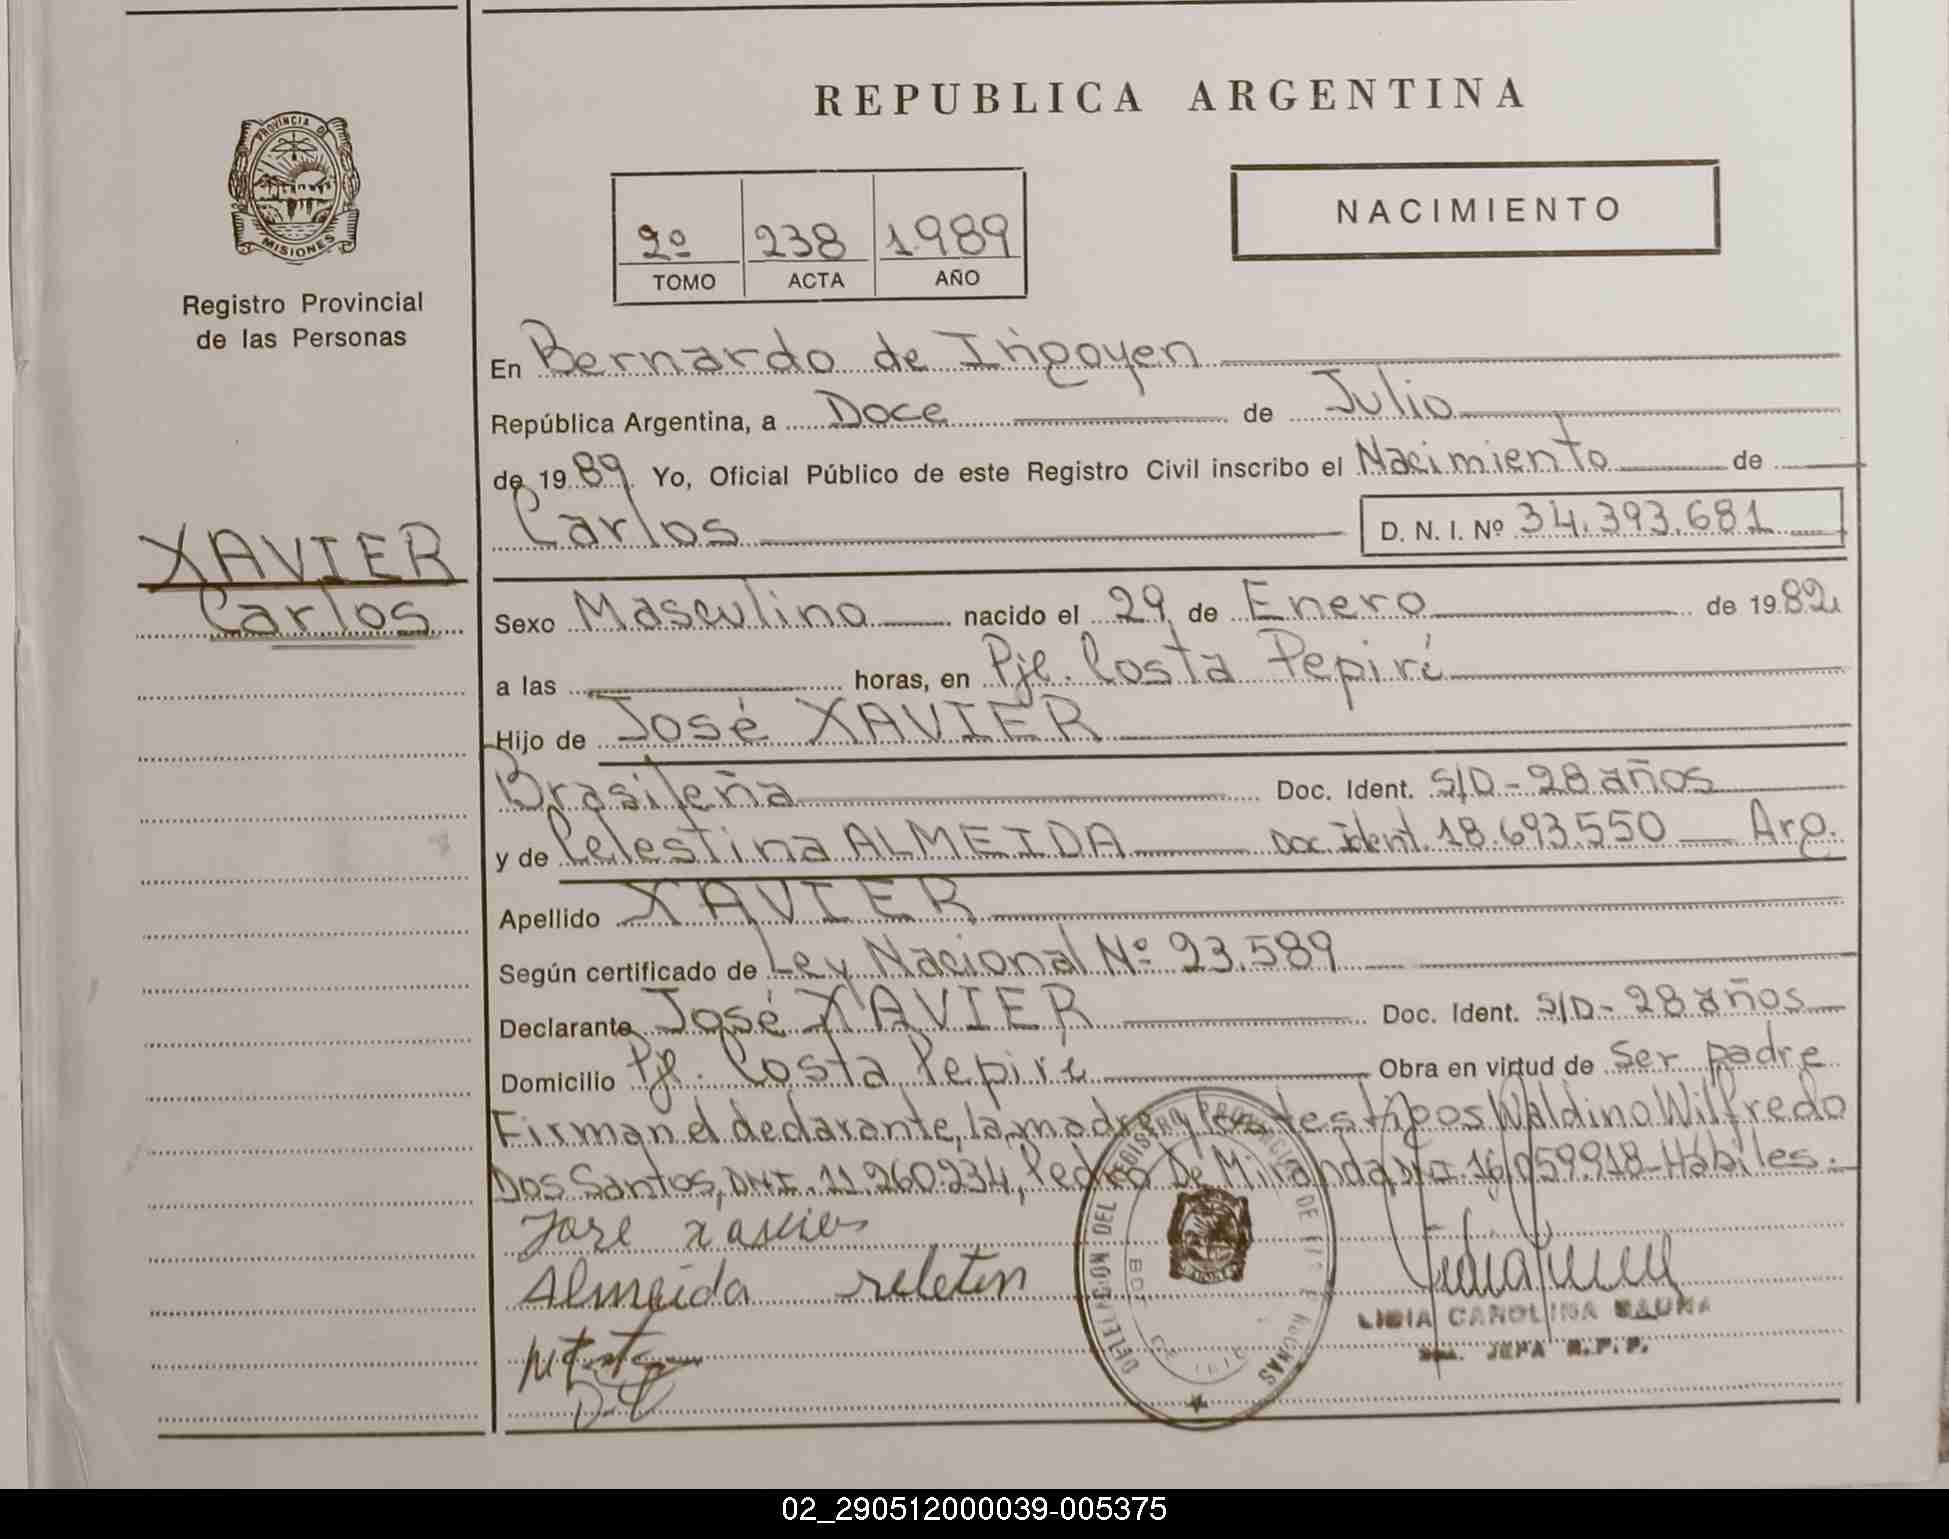 REPUBLICA ARGENTINA
PROVINCIA DE
MISIONES
Registro Provincial
de las Personas
NACIMIENTO
2º 238 1989
TOMO ACTA AÑO
En Bernardo de Irigoyen
República Argentina, a Doce de Julio
de 1989 Yo, Oficial Público de este Registro Civil inscribo el Nacimiento de
Carlos D. N. I. Nº 34.393.681
XAVIER
Carlos
Sexo Masculino nacido el 29 de Enero de 1982
a las horas, en Pje. Costa Pepirí
Hijo de José XAVIER
Brasileña Doc. Ident. S/D - 28 años
y de Celestina ALMEIDA Doc. Ident. 18.693.550 Arg.
Apellido XAVIER
Según certificado de Ley Nacional Nº 23.589
Declarante José XAVIER Doc. Ident. S/D - 28 años
Domicilio Pje. Costa Pepiri Obra en virtud de Ser padre
Firman el declarante, la madre y los testigos Waldino Wilfredo
Dos Santos, DNI. 11.260.234, Pedro De Miranda DNI. 16.059.918 - Hábiles.
Jose xavier
Almeida
DELEGACION DEL REGISTRO PROVINCIAL DE
LIDIA CAROLINA
JEFA R.P.P.
02_290512000039-005375